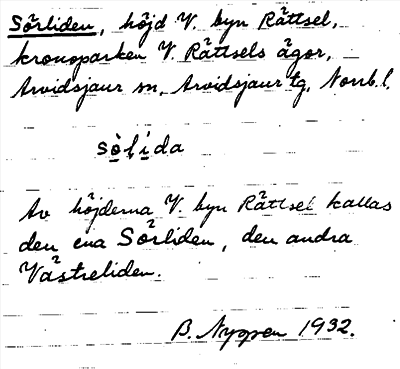 Sörliden, höjd V. byn Rättsel,
kronoparken V. Rättsels ägor,
Arvidsjaur sn, Arvidsjaur tg, Norrb. l.
sö̀l̥ida
Av höjderna V. byn Rättsel kallas
den ena Sörliden, den andra
Västreliden.
B. Nygren 1932.